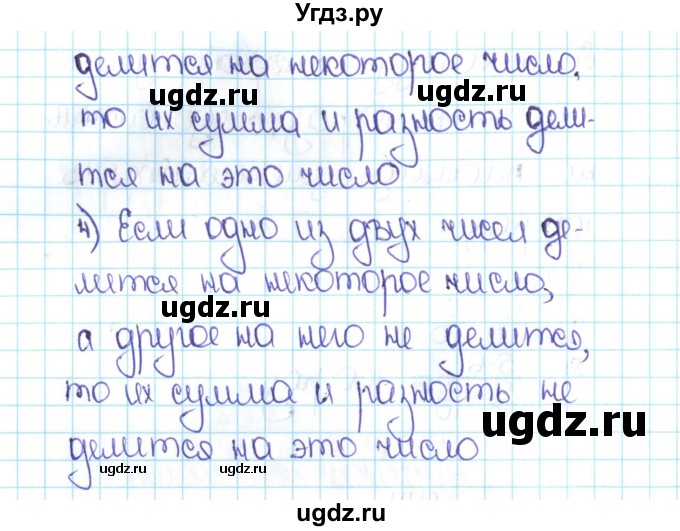 Угдз.ру
делится на некоторое число,
ugdz.ru ugdz.ru
то их сумма и разность дели-
тся на это число
ugdz.ru
4) Если одно из двух чисел де-
лится на некоторое число,
ugdz.ru
а другое на него не делится,
то их сумма и разность не
ugdz.ru
делится на это число
ugdz.ru ugdz.ru
ugdz.ru